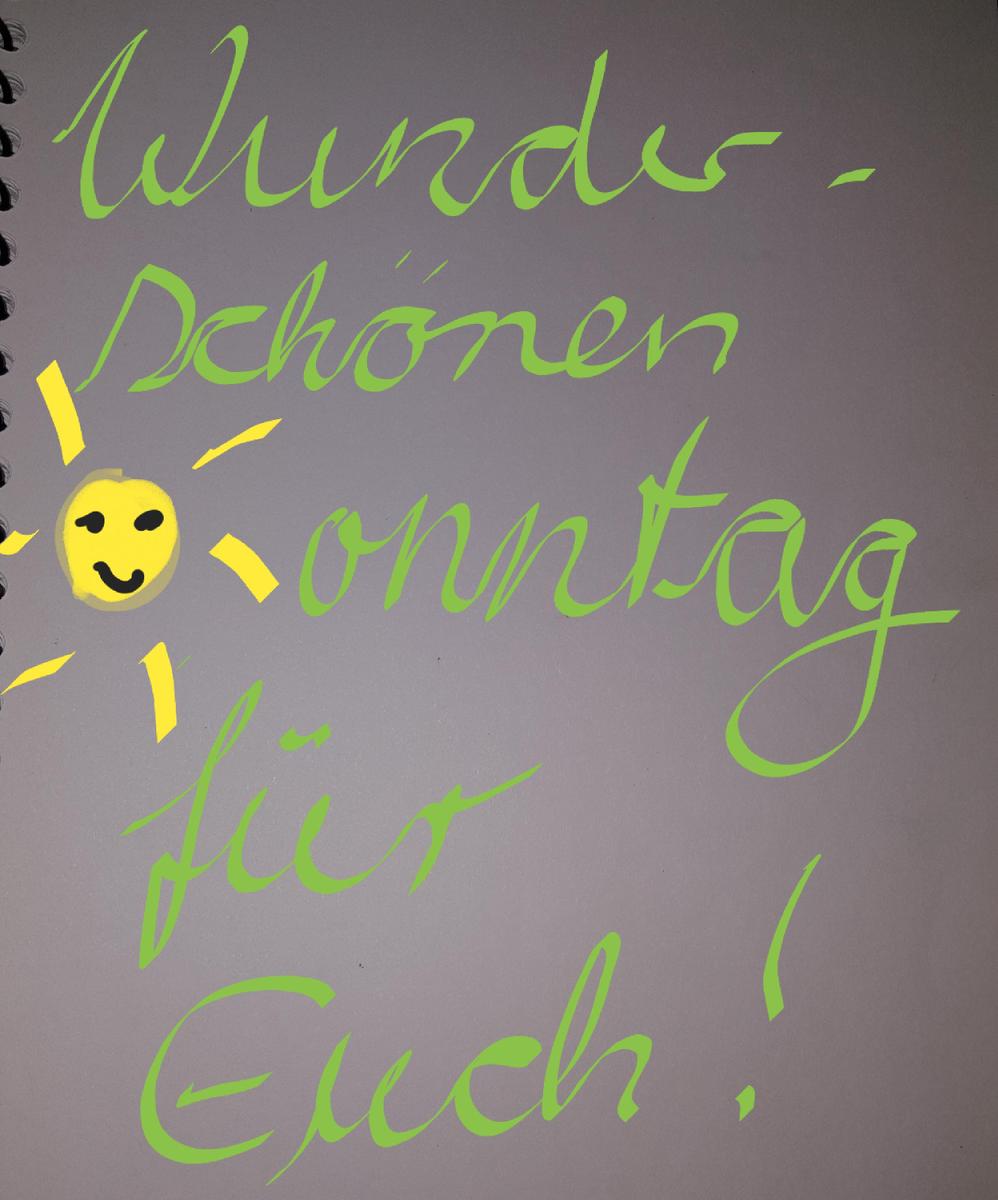 Wunder-
schönen
onntag
für
Euch!